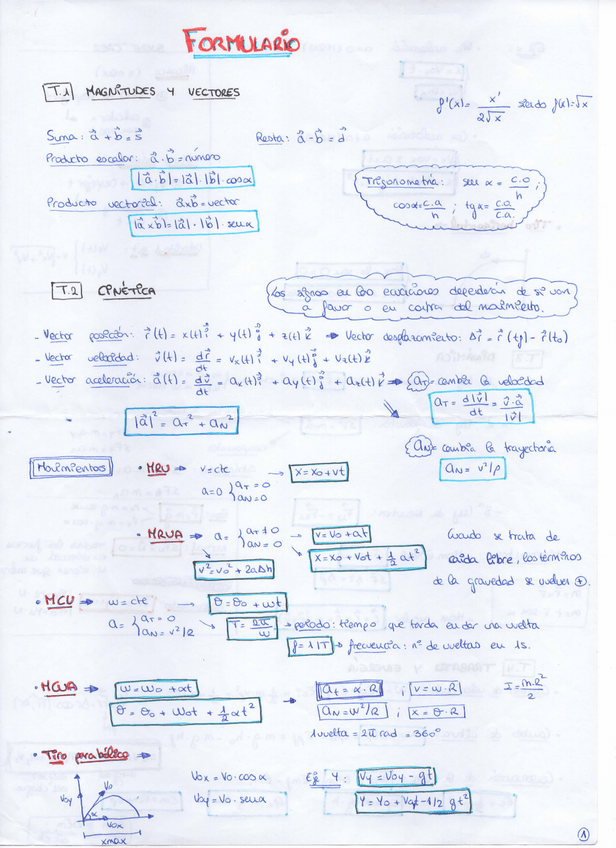 FORMULARIO
T.1 MAGNITUDES Y VECTORES
f'(x) = x'/2√x siendo f(x)=√x
Suma: a⃗ + b⃗ = s⃗ Resta: a⃗ - b⃗ = d⃗
Producto escalar: a⃗ · b⃗ = número
|a⃗ · b⃗| = |a⃗| · |b⃗| · cos α
Producto vectorial: a⃗xb⃗ = vector
|a⃗ x b⃗| = |a⃗| · |b⃗| · seu α
Trigonometría: seu α = c.o/h ;
cosα = c.a/h ; tgα = c.o/c.a.
T.2 CINÉTICA
Los signos en las ecuaciones dependerán de si van
a favor o en contra del movimiento.
- Vector posición: r⃗(t) = x(t)i⃗ + y(t)j⃗ + z(t)k⃗ ⇒ Vector desplazamiento: Δr⃗ = r⃗(tf) - r⃗(t0)
- Vector velocidad: v⃗(t) = dr⃗/dt = vx(t)i⃗ + vy(t)j⃗ + vz(t)k⃗
- Vector aceleración: a⃗(t) = dv⃗/dt = ax(t)i⃗ + ay(t)j⃗ + az(t)k⃗ ⇒ aT = cambia la velocidad
aT = d|v⃗|/dt = v⃗·a⃗/|v⃗|
|a⃗|² = aT² + aN²
aN = cambia la trayectoria
aN = v²/ρ
Movimientos
• MRU ⇒ v = cte → x = x0 + vt
a=0 { aT = 0 aN = 0
• MRUA ⇒ a = { aT ≠ 0 aN = 0 → v = v0 + at
x = x0 + v0t + 1/2 at²
v² = v0² + 2aΔh
Cuando se trata de
caída libre, los términos
de la gravedad se vuelven ⊕.
• MCU ⇒ ω = cte → θ = θ0 + ωt
a = { aT = 0 aN = v²/R → T = 2π/ω → período: tiempo que tarda en dar una vuelta
f = 1/T → frecuencia: nº de vueltas en 1s.
• MCUA ⇒ ω = ω0 + αt
θ = θ0 + ω0t + 1/2 αt²
→ at = α · R ; v = ω · R I = m·R²/2
aN = ω²/R ; x = θ · R
1 vuelta = 2π rad = 360°
• Tiro parabólico
v0y v0 α v0x xmax
v0x = v0 · cos α Eje Y: vy = v0y - gt
v0y = v0 · seu α y = y0 + v0yt - 1/2 gt²
1